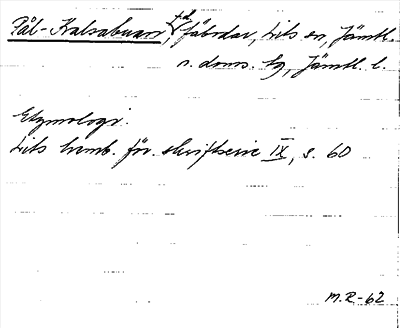 Pål-Kalsabuarr, fäbodar, Lits sn, Jämtl.
n. doms. hg, Jämtl. l.
Etymologi.
Lits hemb. för. skriftserie IX, s. 60
M.R-62